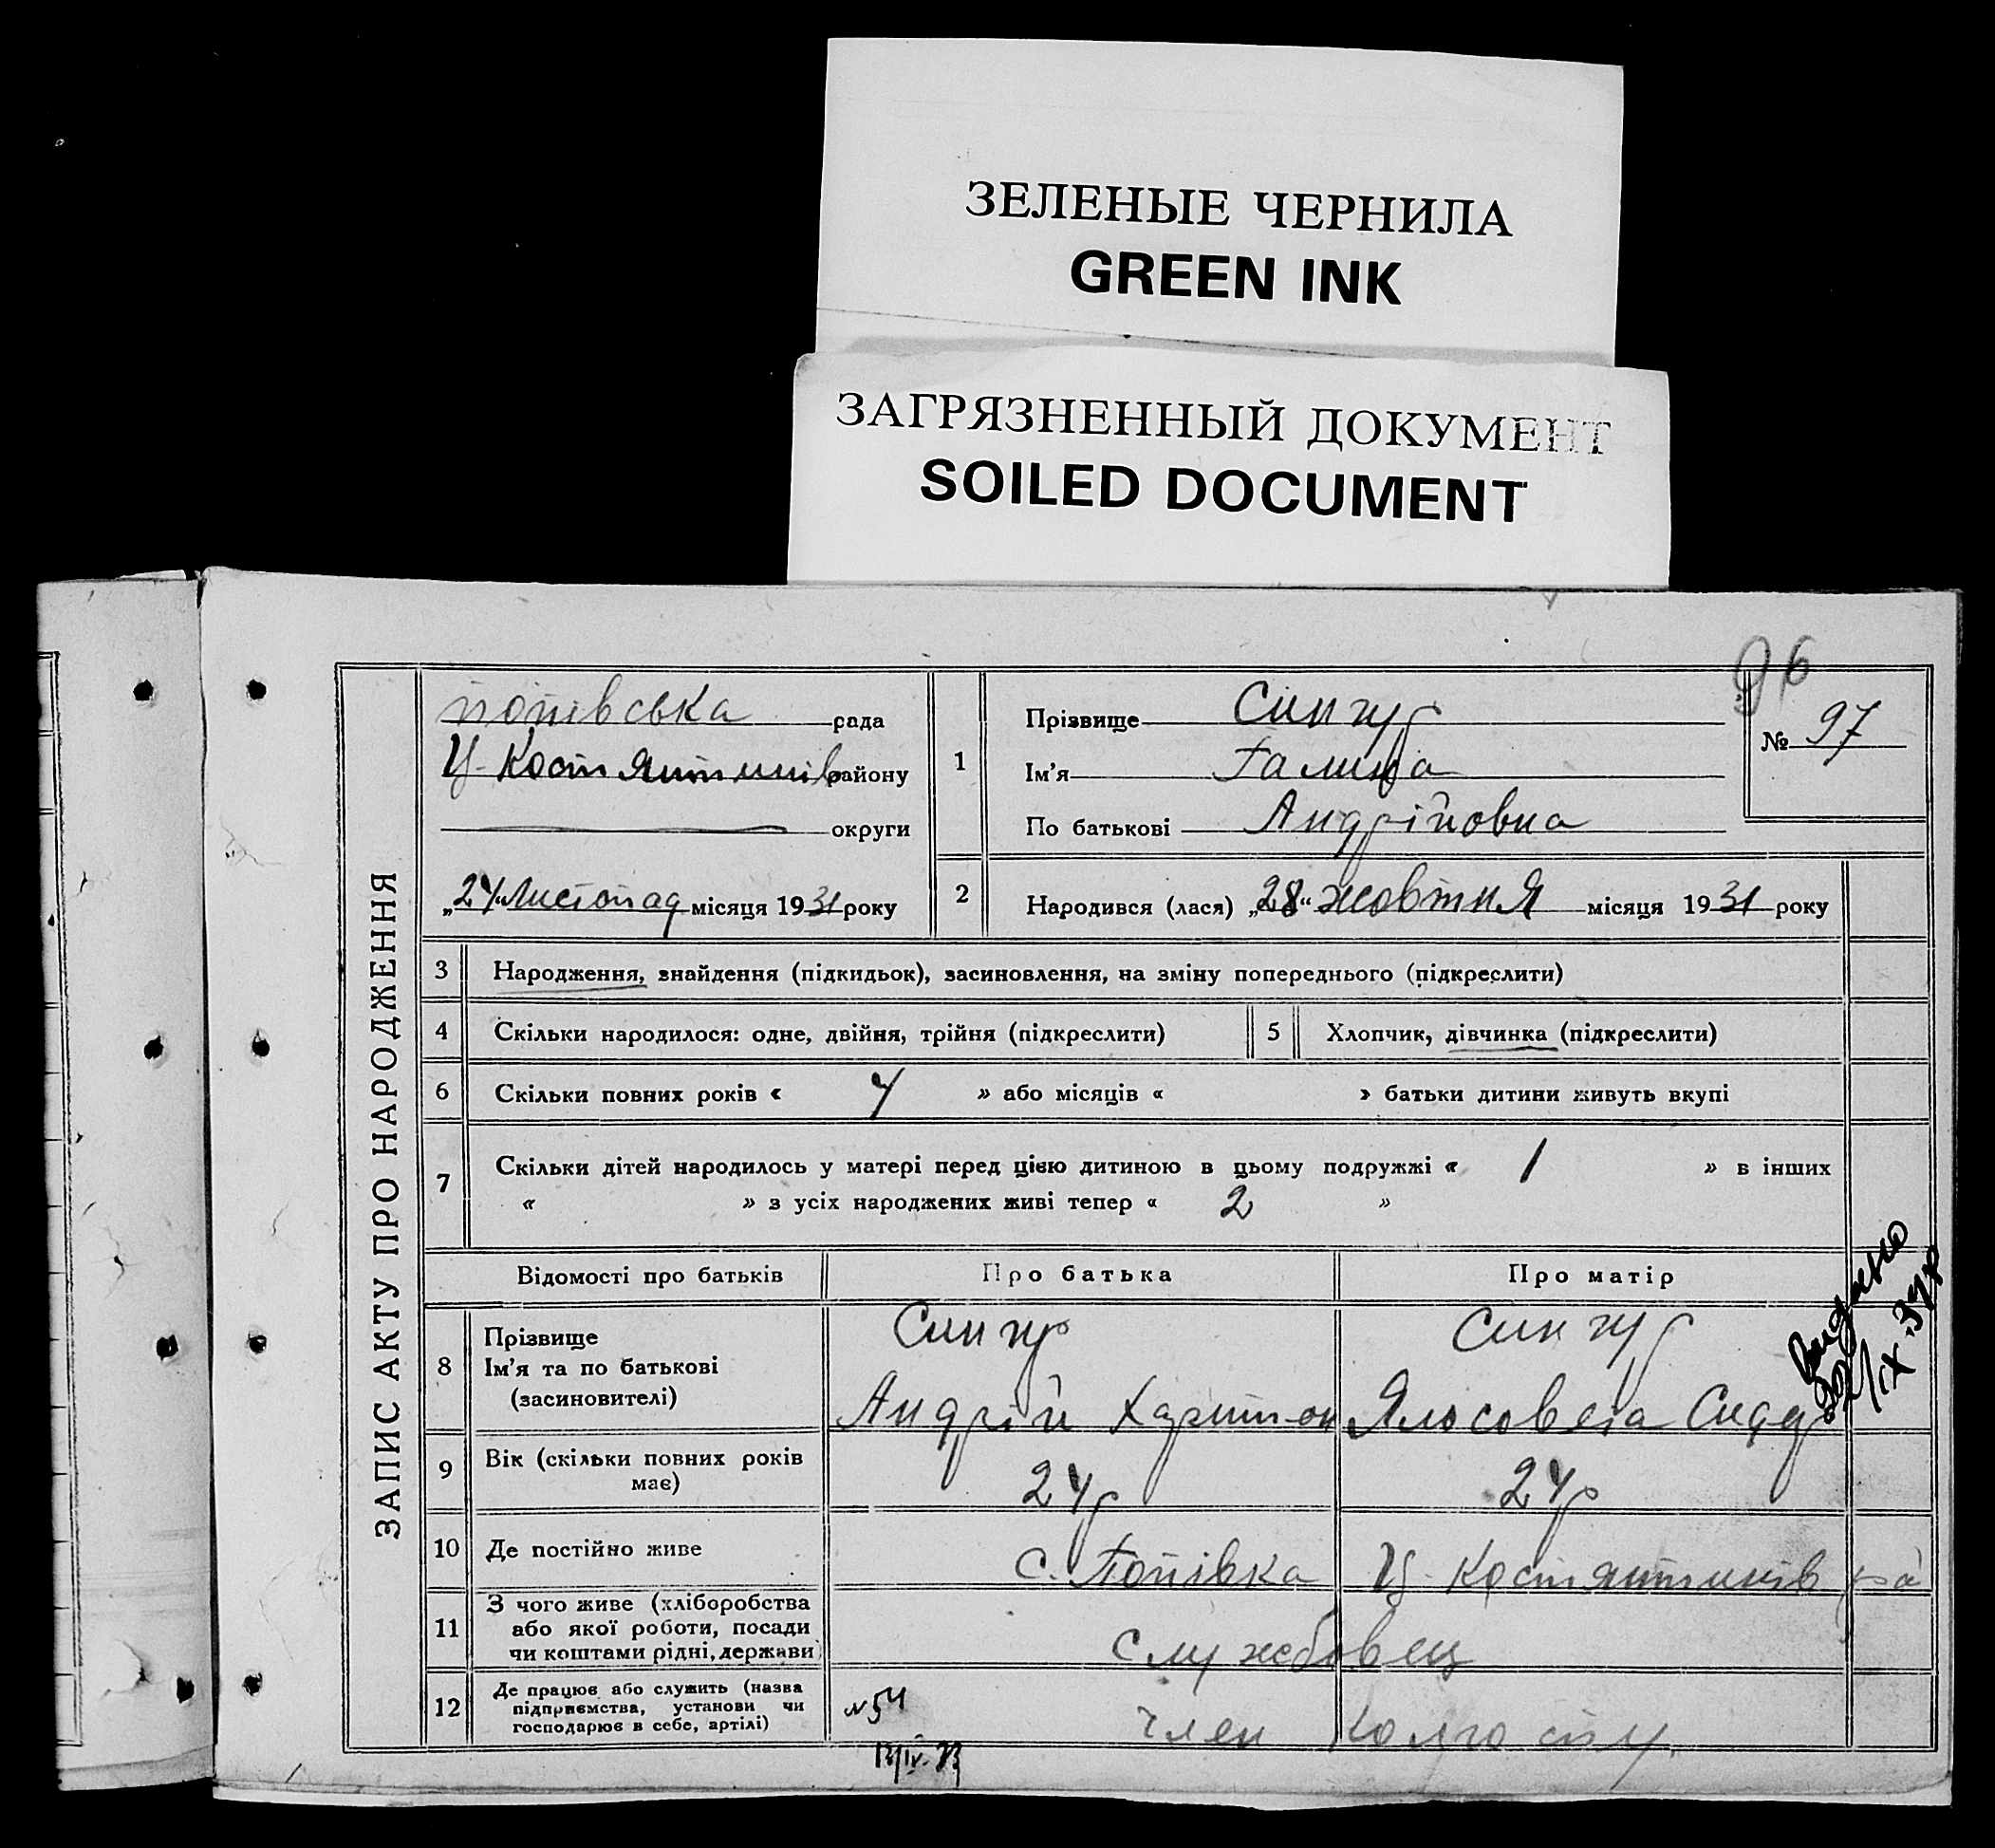 ЗЕЛЕНЫЕ ЧЕРНИЛА
GREEN INK
ЗАГРЯЗНЕННЫЙ ДОКУМЕНТ
SOILED DOCUMENT
96
ЗАПИС АКТУ ПРО НАРОДЖЕННЯ
попівська рада
Ц-Костянтинів району
округи
„24“ Листопад місяця 1931 року
1
Прізвище Сингур
Ім'я Галина
По батькові Андрійовна
№ 97
2 Народився (лася) „28“ жовтня місяця 1931 року
3 Народження, знайдення (підкидьок), засиновлення, на зміну попереднього (підкреслити)
4 Скільки народилося: одне, двійня, трійня (підкреслити)
5 Хлопчик, дівчинка (підкреслити)
6 Скільки повних років « 4 » або місяців « » батьки дитини живуть вкупі
7 Скільки дітей народилось у матері перед цією дитиною в цьому подружжі « 1 » в інших
« » з усіх народжених живі тепер « 2 »
Відомості про батьків Про батька Про матір
8 Прізвище
Ім'я та по батькові
(засиновителі)
Сингур Сингур
Андрій Харитон Яльсовета Сидр
Видано
IX.37р
9 Вік (скільки повних років
має)
24р 24р
10 Де постійно живе с. Попівка Ц-Костянтинів ра
11 З чого живе (хліборобства
або якої роботи, посади
чи коштами рідні, держави)
Службовец
12 Де працює або служить (назва
підприємства, установи чи
господарює в себе, артілі)
№54 член колгоспу.